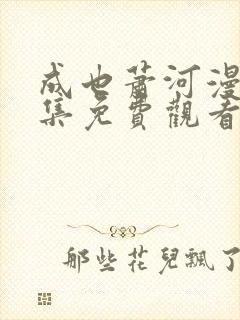 成也蕭河漫
集免費觀看
那些花兒飄了